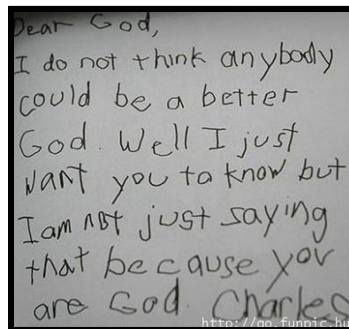 Dear God,
I do not think anybody
could be a better
God. Well I just
want you to know but
I am not just saying
that because you
are God. Charles
http://go.funpic.hu